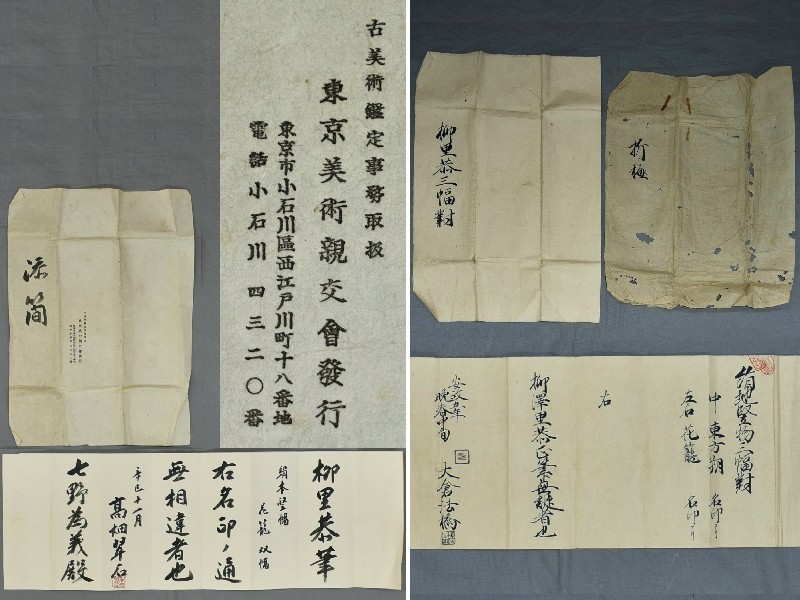 古美術鑑定事務取扱
東京美術親交會發行
東京市小石川區西江戸川町十八番地
電話小石川四三二〇番
添簡
柳里恭筆
絹本竪幅
花籠 双幅
右名印ノ通
無相違者也
辛巳十一月
高畑翠石
七野為義殿
柳里恭三幅對
折極
絹地竪物三幅對
中 東方朔 名印アリ
左右 花籠 名印アリ
右
柳澤里恭正筆無疑者也
晩春中旬
大倉法橋